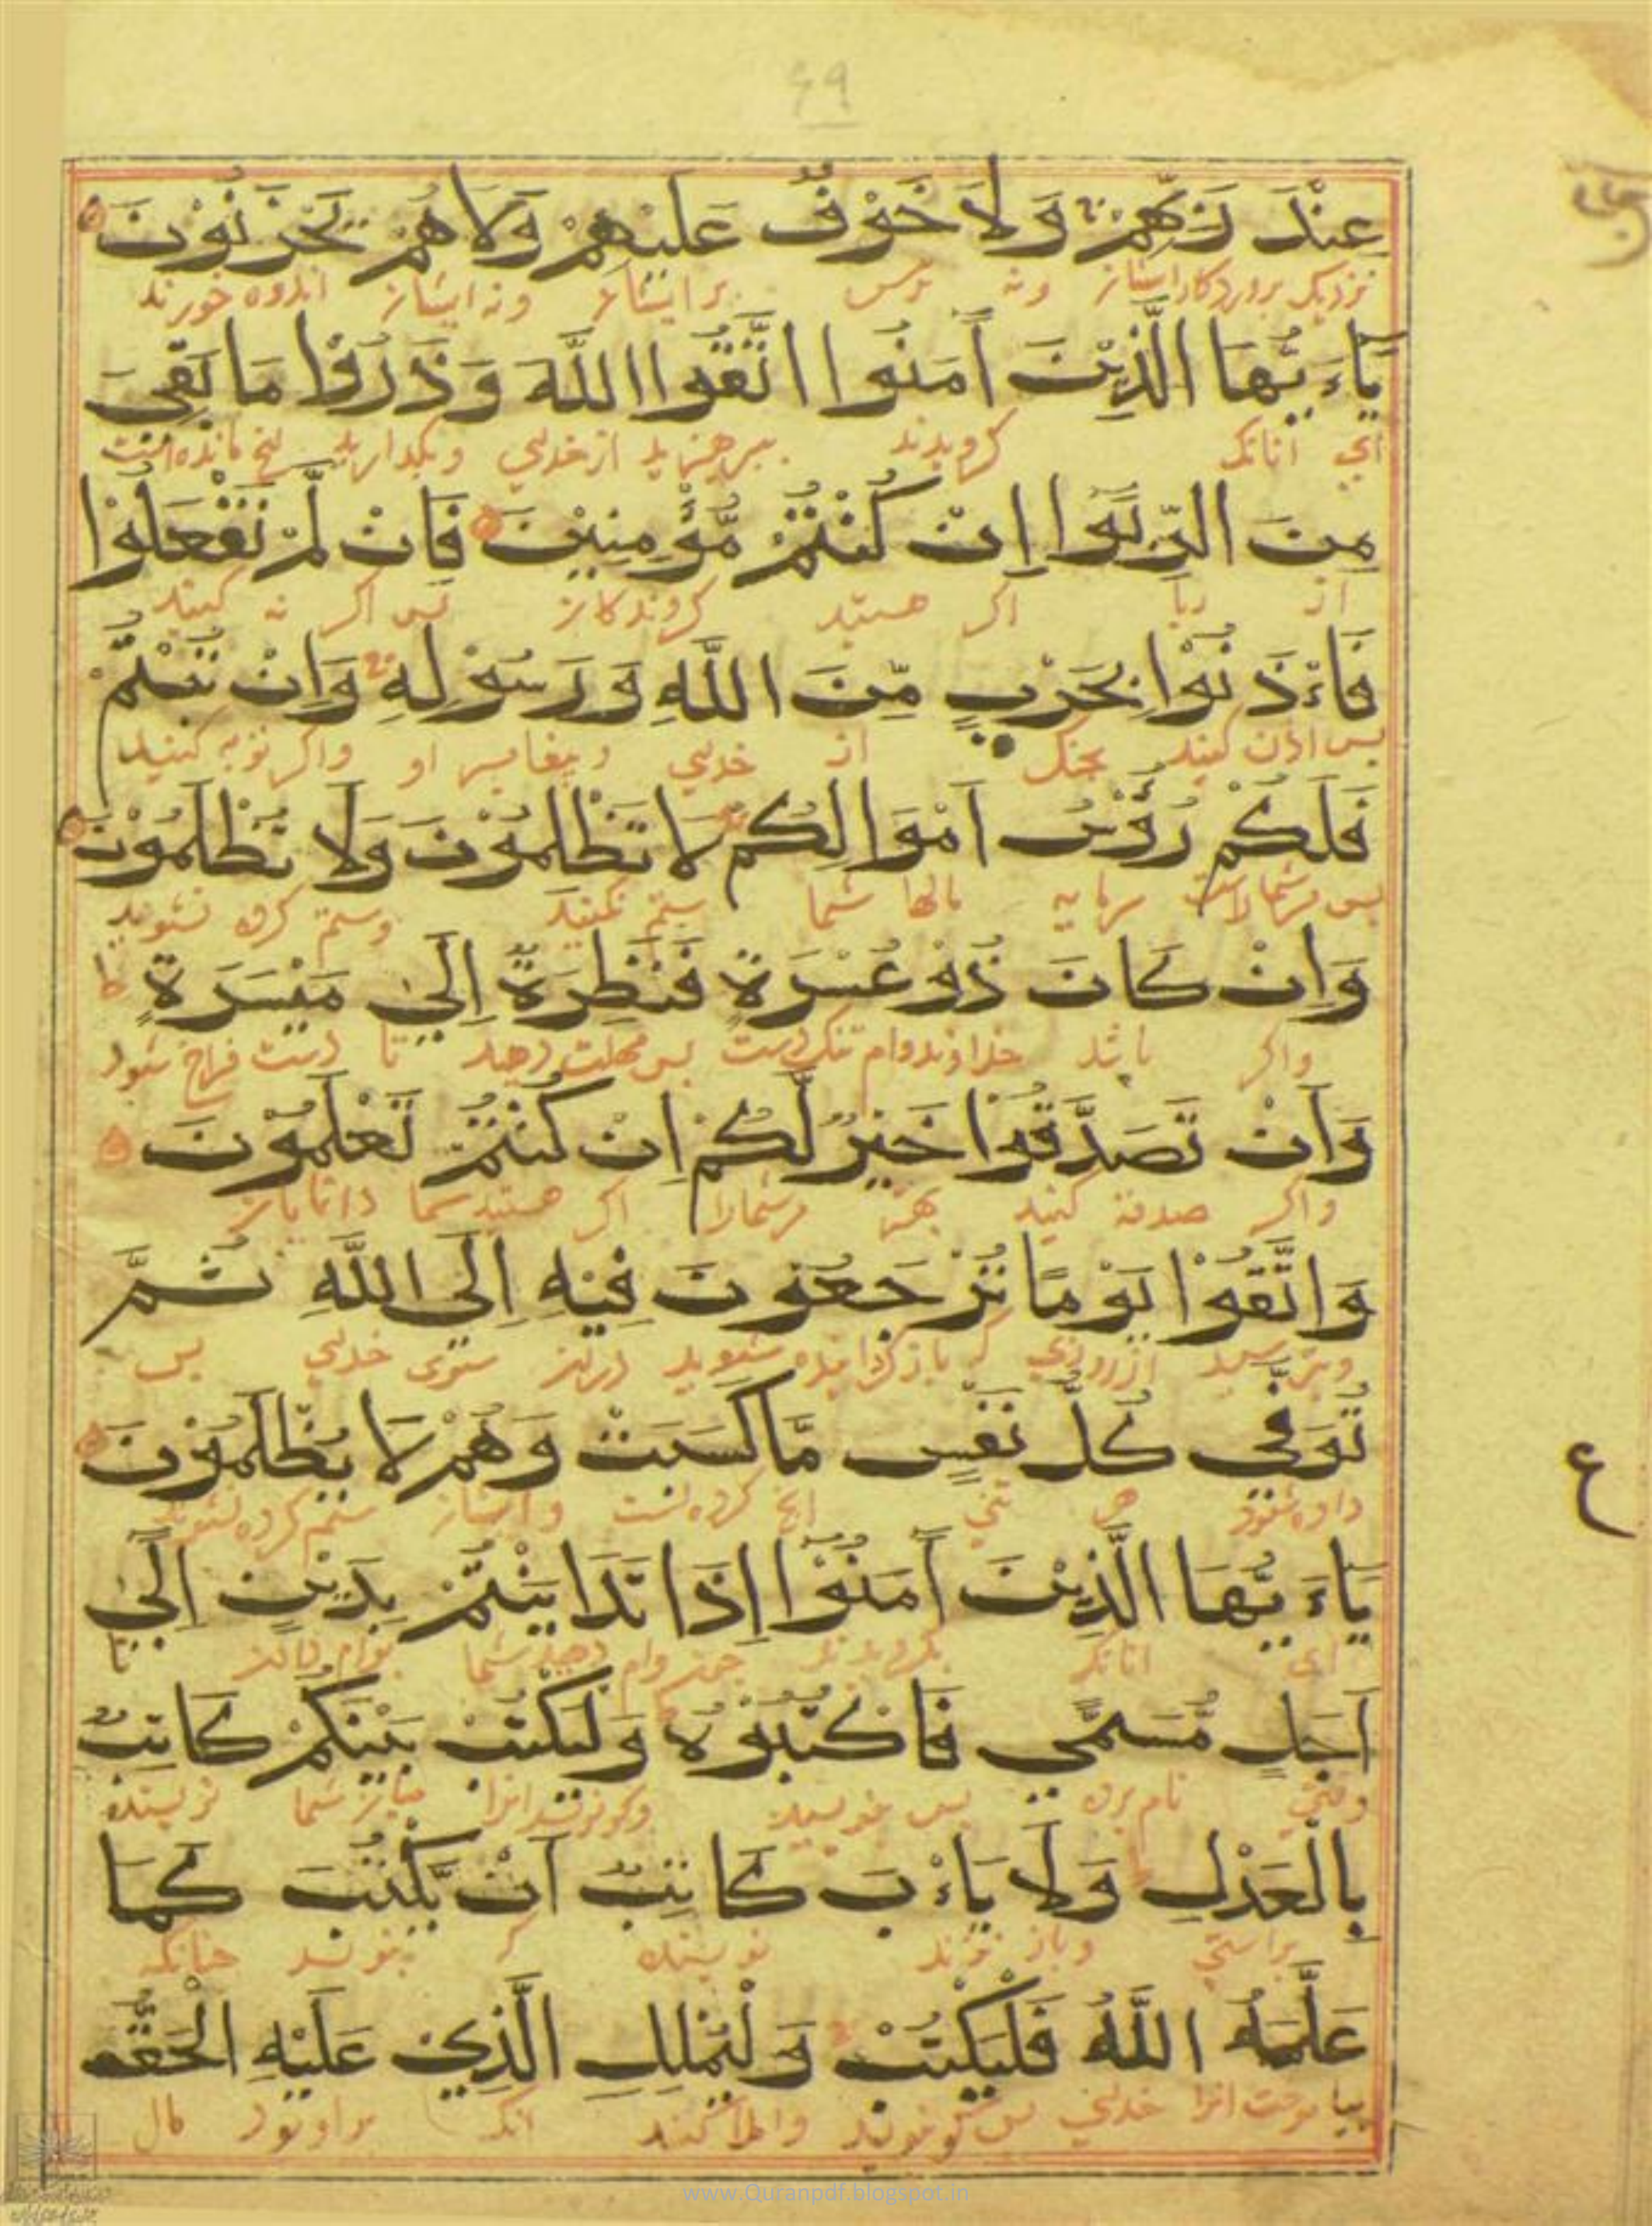 ٤٩
عِنْدَ رَبِّهِمْ وَلَا خَوْفٌ عَلَيْهِمْ وَلَا هُمْ يَحْزَنُوْنَ
نزدیک پروردکار ایشان ونه ترس بر ایشان ونه ایشان اندوه خورند
يَاءَيُّهَا الَّذِيْنَ آمَنُوا اتَّقُوا اللَّهَ وَذَرُوْا مَا بَقِيَ
ای آنانک کرویدند بپرهیزید از خدای وبکذارید انچ مانده است
مِنَ الرِّبَوا إِنْ كُنْتُمْ مُّؤْمِنِيْنَ فَاِنْ لَمْ تَفْعَلُوْا
از ربا اکر هستید کروندکان پس اکر نه کنید
فَاءْذَنُوْا بِحَرْبٍ مِّنَ اللَّهِ وَرَسُوْلِهِ وَاِنْ تُبْتُمْ
پس اذن کنید بجنک از خدای وپیغامبر او واکر توبه کنید
فَلَكُمْ رُؤُسُ اَمْوَالِكُمْ لَا تَظْلِمُوْنَ وَلَا تُظْلَمُوْنَ
پس مرشماراست سرمایه مالها شما ستم نکنید وستم کرده نشوید
وَاِنْ كَانَ ذُوْ عُسْرَةٍ فَنَظِرَةٌ اِلَي مَيْسَرَةٍ ط
واکر باشد خداوند وام تنک دست پس مهلت دهید تا دست فراخ شود
وَاَنْ تَصَدَّقُوْا خَيْرٌ لَّكُمْ اِنْ كُنْتُمْ تَعْلَمُوْنَ
واکر صدقه کنید بهتر مرشمارا اکر هستید شما دانایان
وَاتَّقُوْا يَوْمًا تُرْجَعُوْنَ فِيْهِ اِلَى اللَّهِ ثُمَّ
وبترسید از روزی کی باز کردانیده شوید دران سوی خدای پس
تُوَفَّي كُلُّ نَفْسٍ مَّا كَسَبَتْ وَهُمْ لَا يُظْلَمُوْنَ
داده شود هر تنی انچ کرده است وایشان ستم کرده نشوند
ع
يَاءَيُّهَا الَّذِيْنَ آمَنُوْا اِذَا تَدَايَنْتُمْ بِدَيْنٍ اِلَي
ای انانک بکرویدند چون وام دهید شما بوام دادن تا
اَجَلٍ مُّسَمًّي فَاكْتُبُوْهُ وَلْيَكْتُبْ بَيْنَكُمْ كَاتِبٌ
وقتی نام برده پس بنویسید میان شما نویسنده
بِالْعَدْلِ وَلَا يَاءْبَ كَاتِبٌ اَنْ يَّكْتُبَ كَمَا
براستی وباز نزند نویسنده کی بنویسد چنانکه
عَلَّمَهُ اللَّهُ فَلْيَكْتُبْ وَلْيُمْلِلِ الَّذِيْ عَلَيْهِ الْحَقُّ
بیاموخت انرا خدای واملا کنند انک براو بود مال
www.Quranpdf.blogspot.in